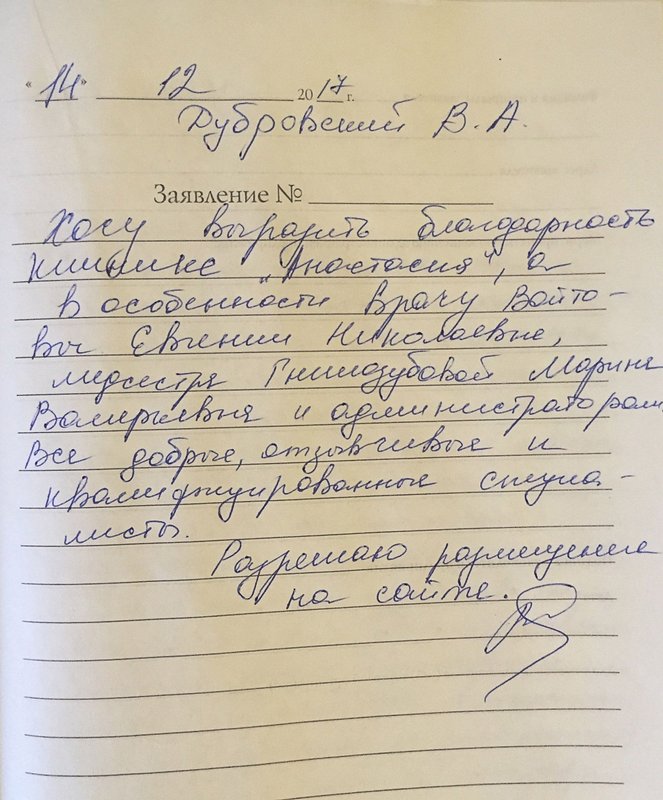 "14" 12 2017 г.
Дубровский В. А.
Заявление №
Хочу выразить благодарность
клинике "Анастасия", а
в особенности врачу Войто-
вич Евгении Николаевне,
медсестре Гнилозубовой Марине
Валерьевне и администраторам.
Все добрые, отзывчивые и
квалифицированные специа-
листы.
Разрешаю размещение
на сайте.